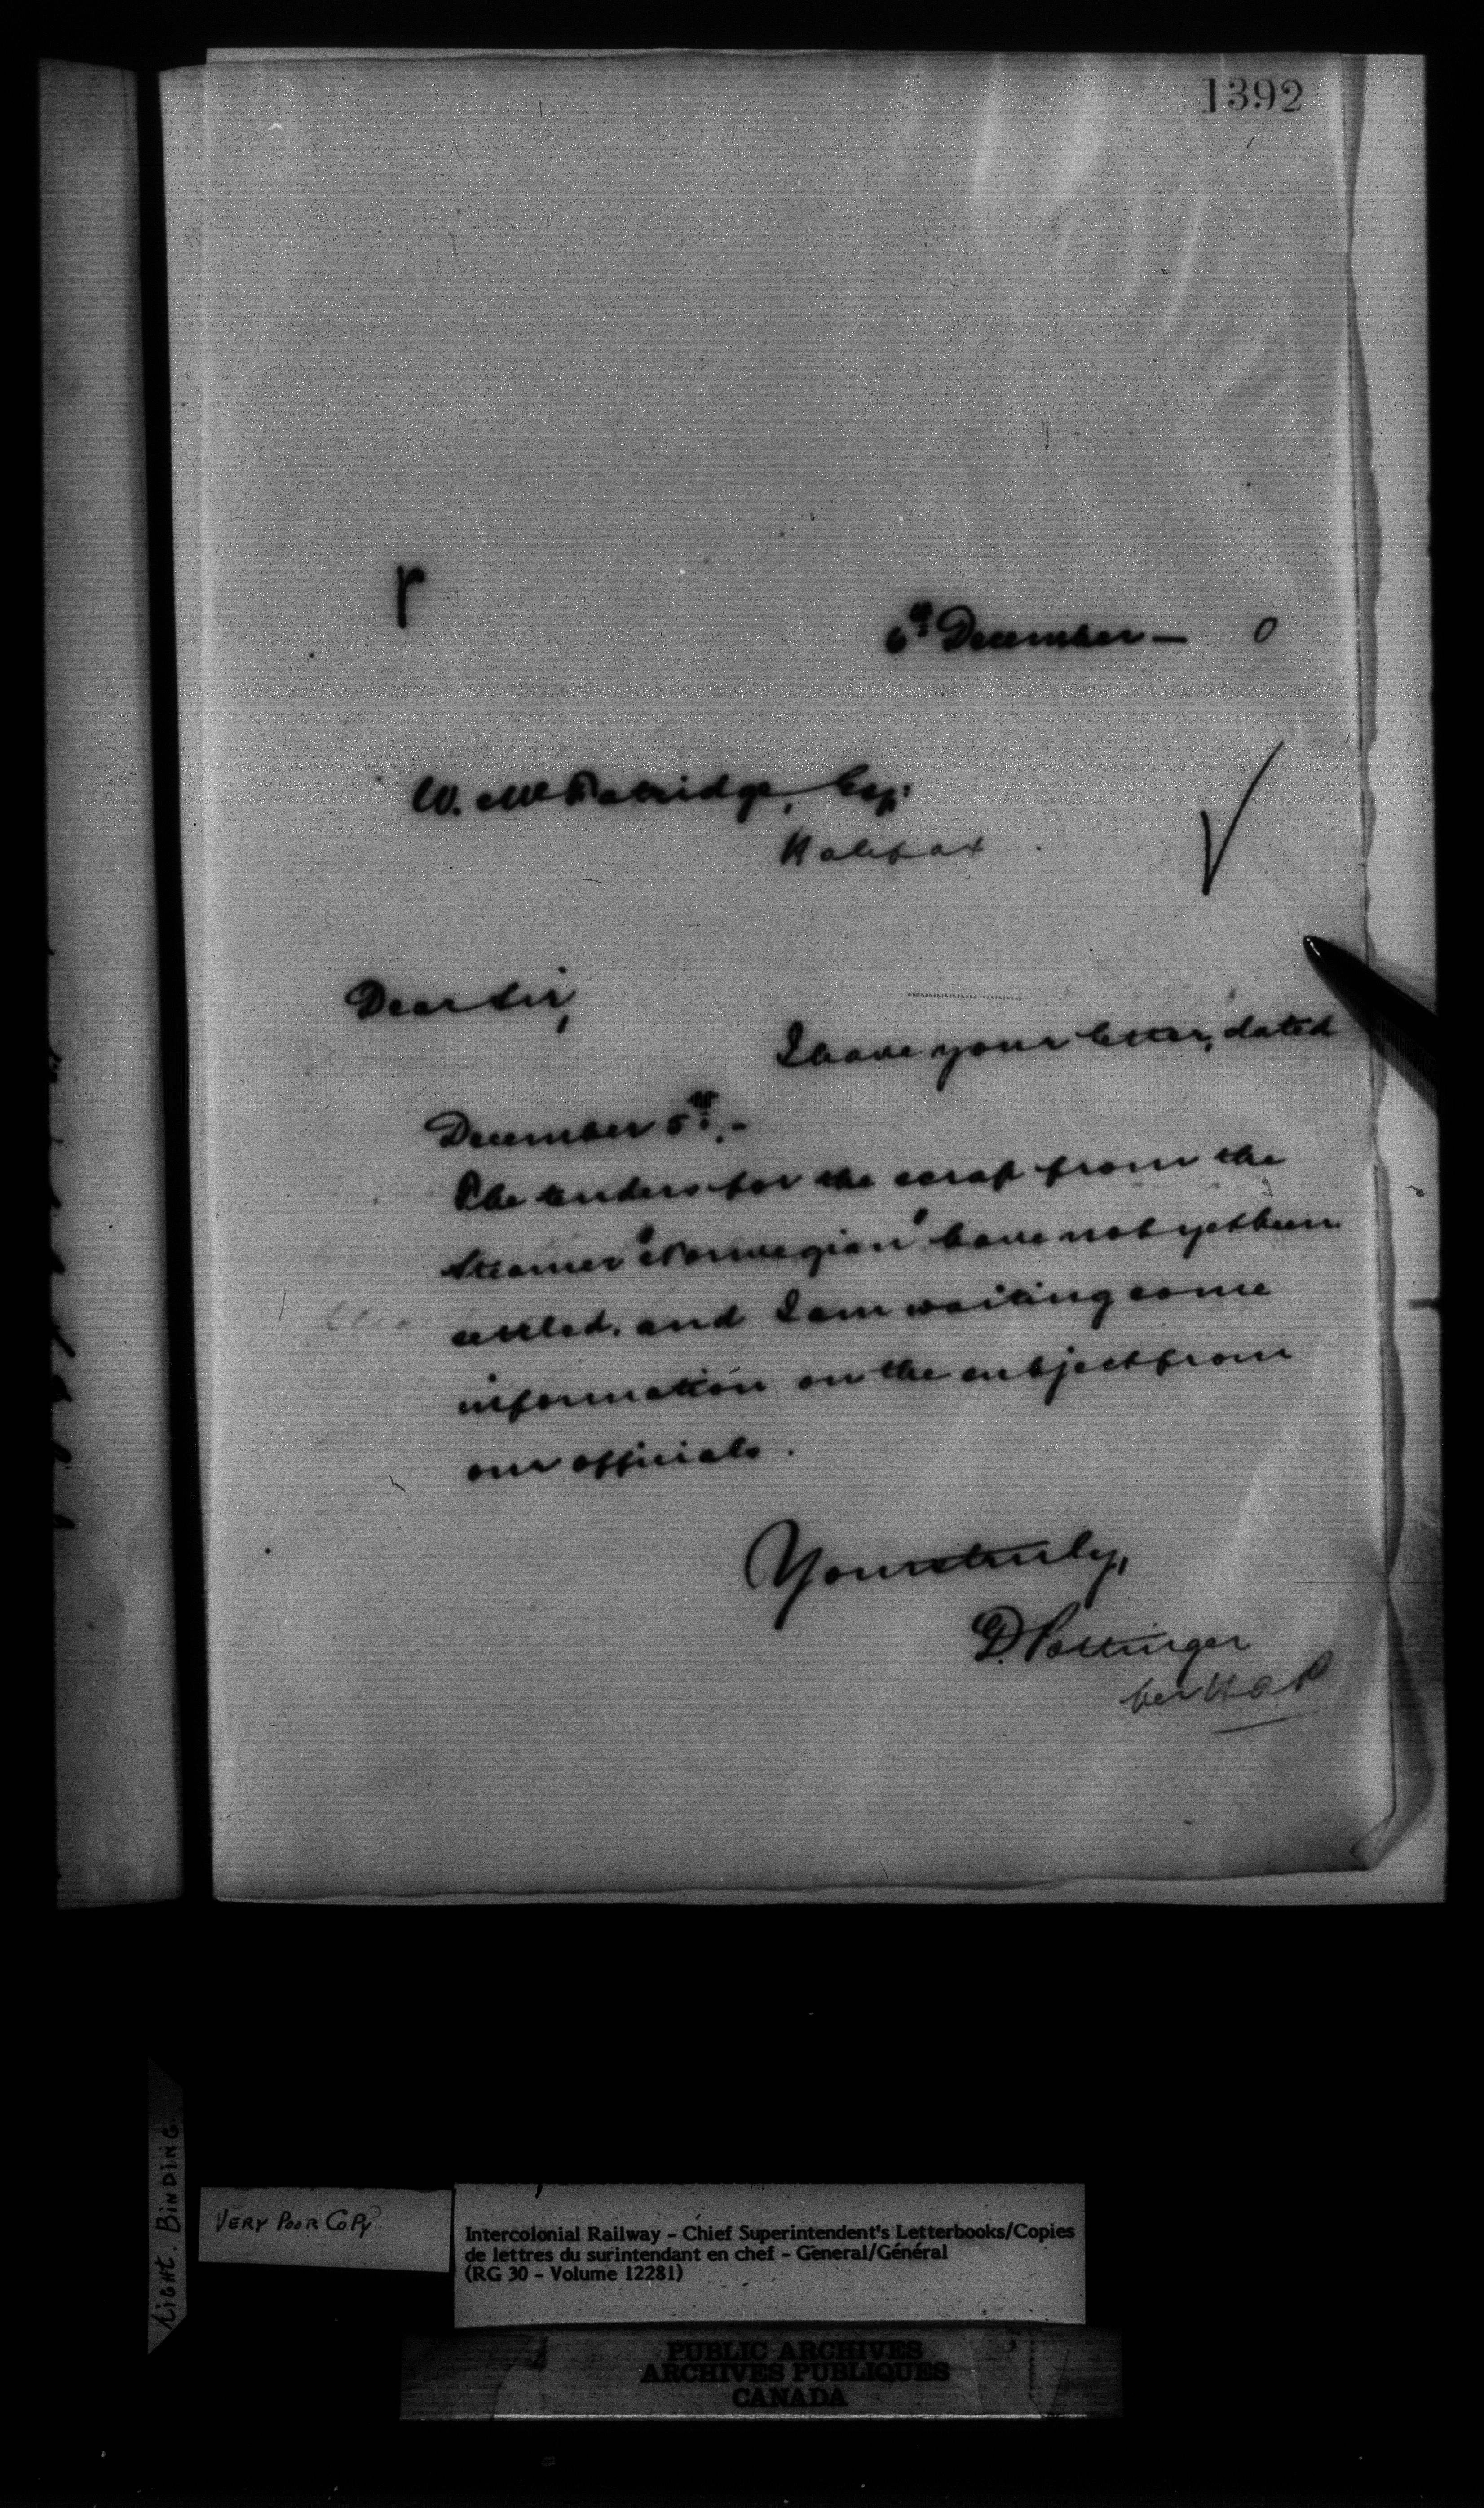 1392
6th December — 0
W. McFatridge, Esq:
Halifax
Dear Sir,
I have your letter, dated
December 5th. -
The tenders for the scrap from the
steamer "Norwegian" have not yet been
settled, and I am waiting some
information on the subject from
our officials.
Yours truly,
D. Pottinger
per
TIGHT. BINDING.
VERY POOR COPY
Intercolonial Railway – Chief Superintendent's Letterbooks/Copies
de lettres du surintendant en chef – General/Général
(RG 30 – Volume 12281)
PUBLIC ARCHIVES
ARCHIVES PUBLIQUES
CANADA